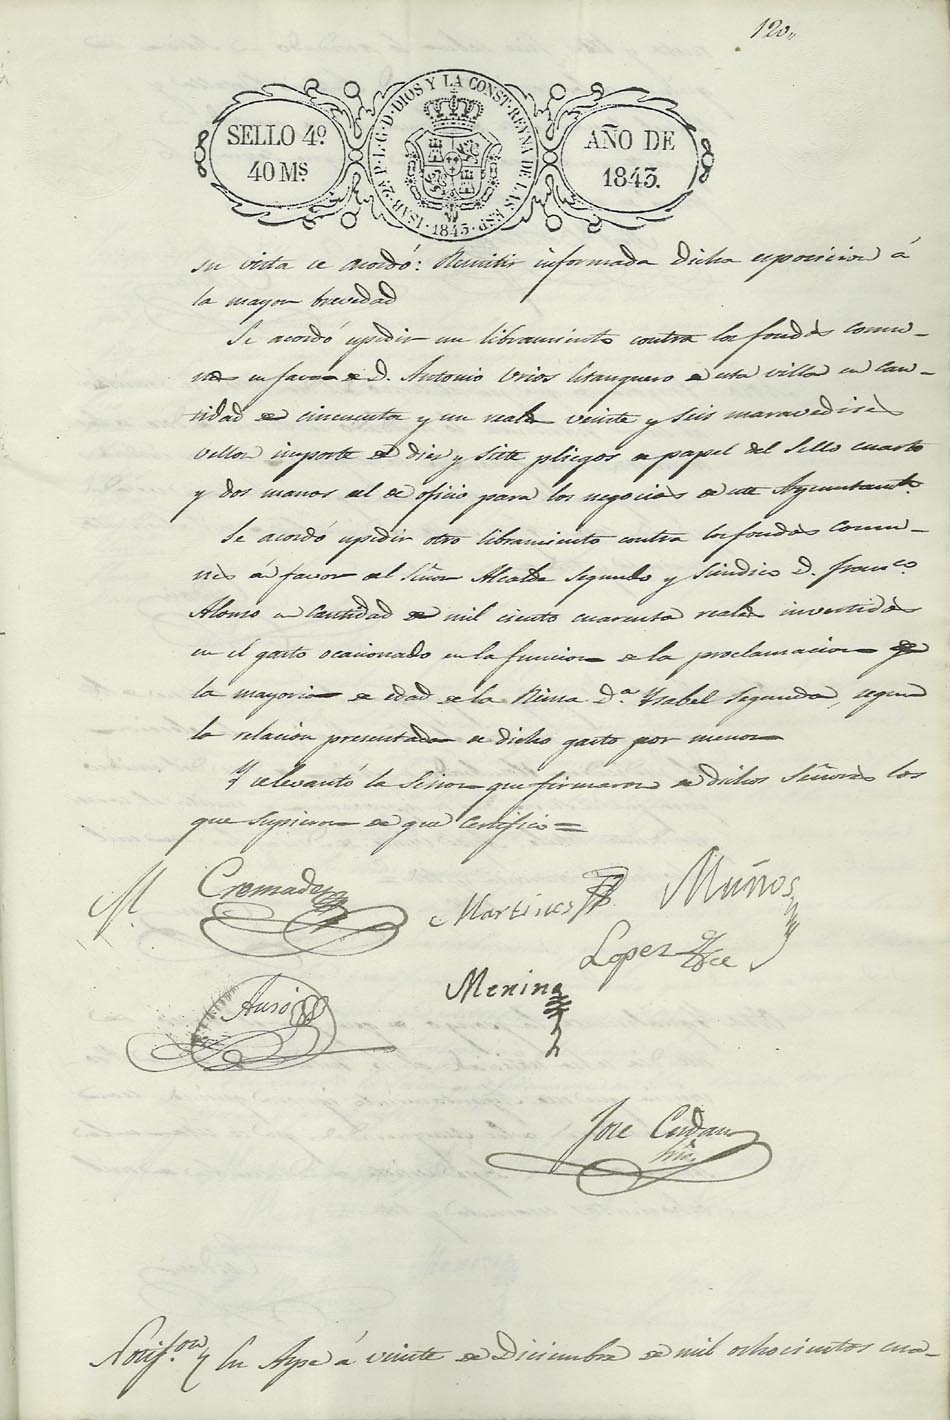 120,,
ISAB. 2ª P. L. G. D. DIOS Y LA CONST. REYNA DE LAS ESP.s 1843.
SELLO 4º.
40 Ms.
AÑO DE
1843.
su vista se acordó: Remitir informada dicha esposicion á
la mayor brevedad
Se acordó espedir un libramiento contra los fondos comu-
nes en favor de D. Antonio Urios Estanquero de esta villa en can-
tidad de cincuenta y un reales veinte y seis maravedises
vellon importe de diez y siete pliegos de papel del Sello cuarto
y dos manos del de oficio para los negocios de este Ayuntamto.
Se acordó espedir otro libramiento contra los fondos comu-
nes á favor del Señor Alcalde Segundo y Sindico D. Franco.
Alonso en cantidad de mil ciento cuarenta reales invertidos
en el gasto ocacionado en la funcion de la proclamacion de
la mayoria de edad de la Reina D.ª Ysabel Segunda, segun
la relacion presentada de dicho gasto por menor
Y se levantó la Sesion que firmaron de dichos Señores los
que supieron de que Certifico =
M. Cremades
Martines
Muños
Lopez
Menina
Jose Cerdan
Srio.
Notif.on y En Aspe á veinte de Diciembre de mil ochocientos cua-